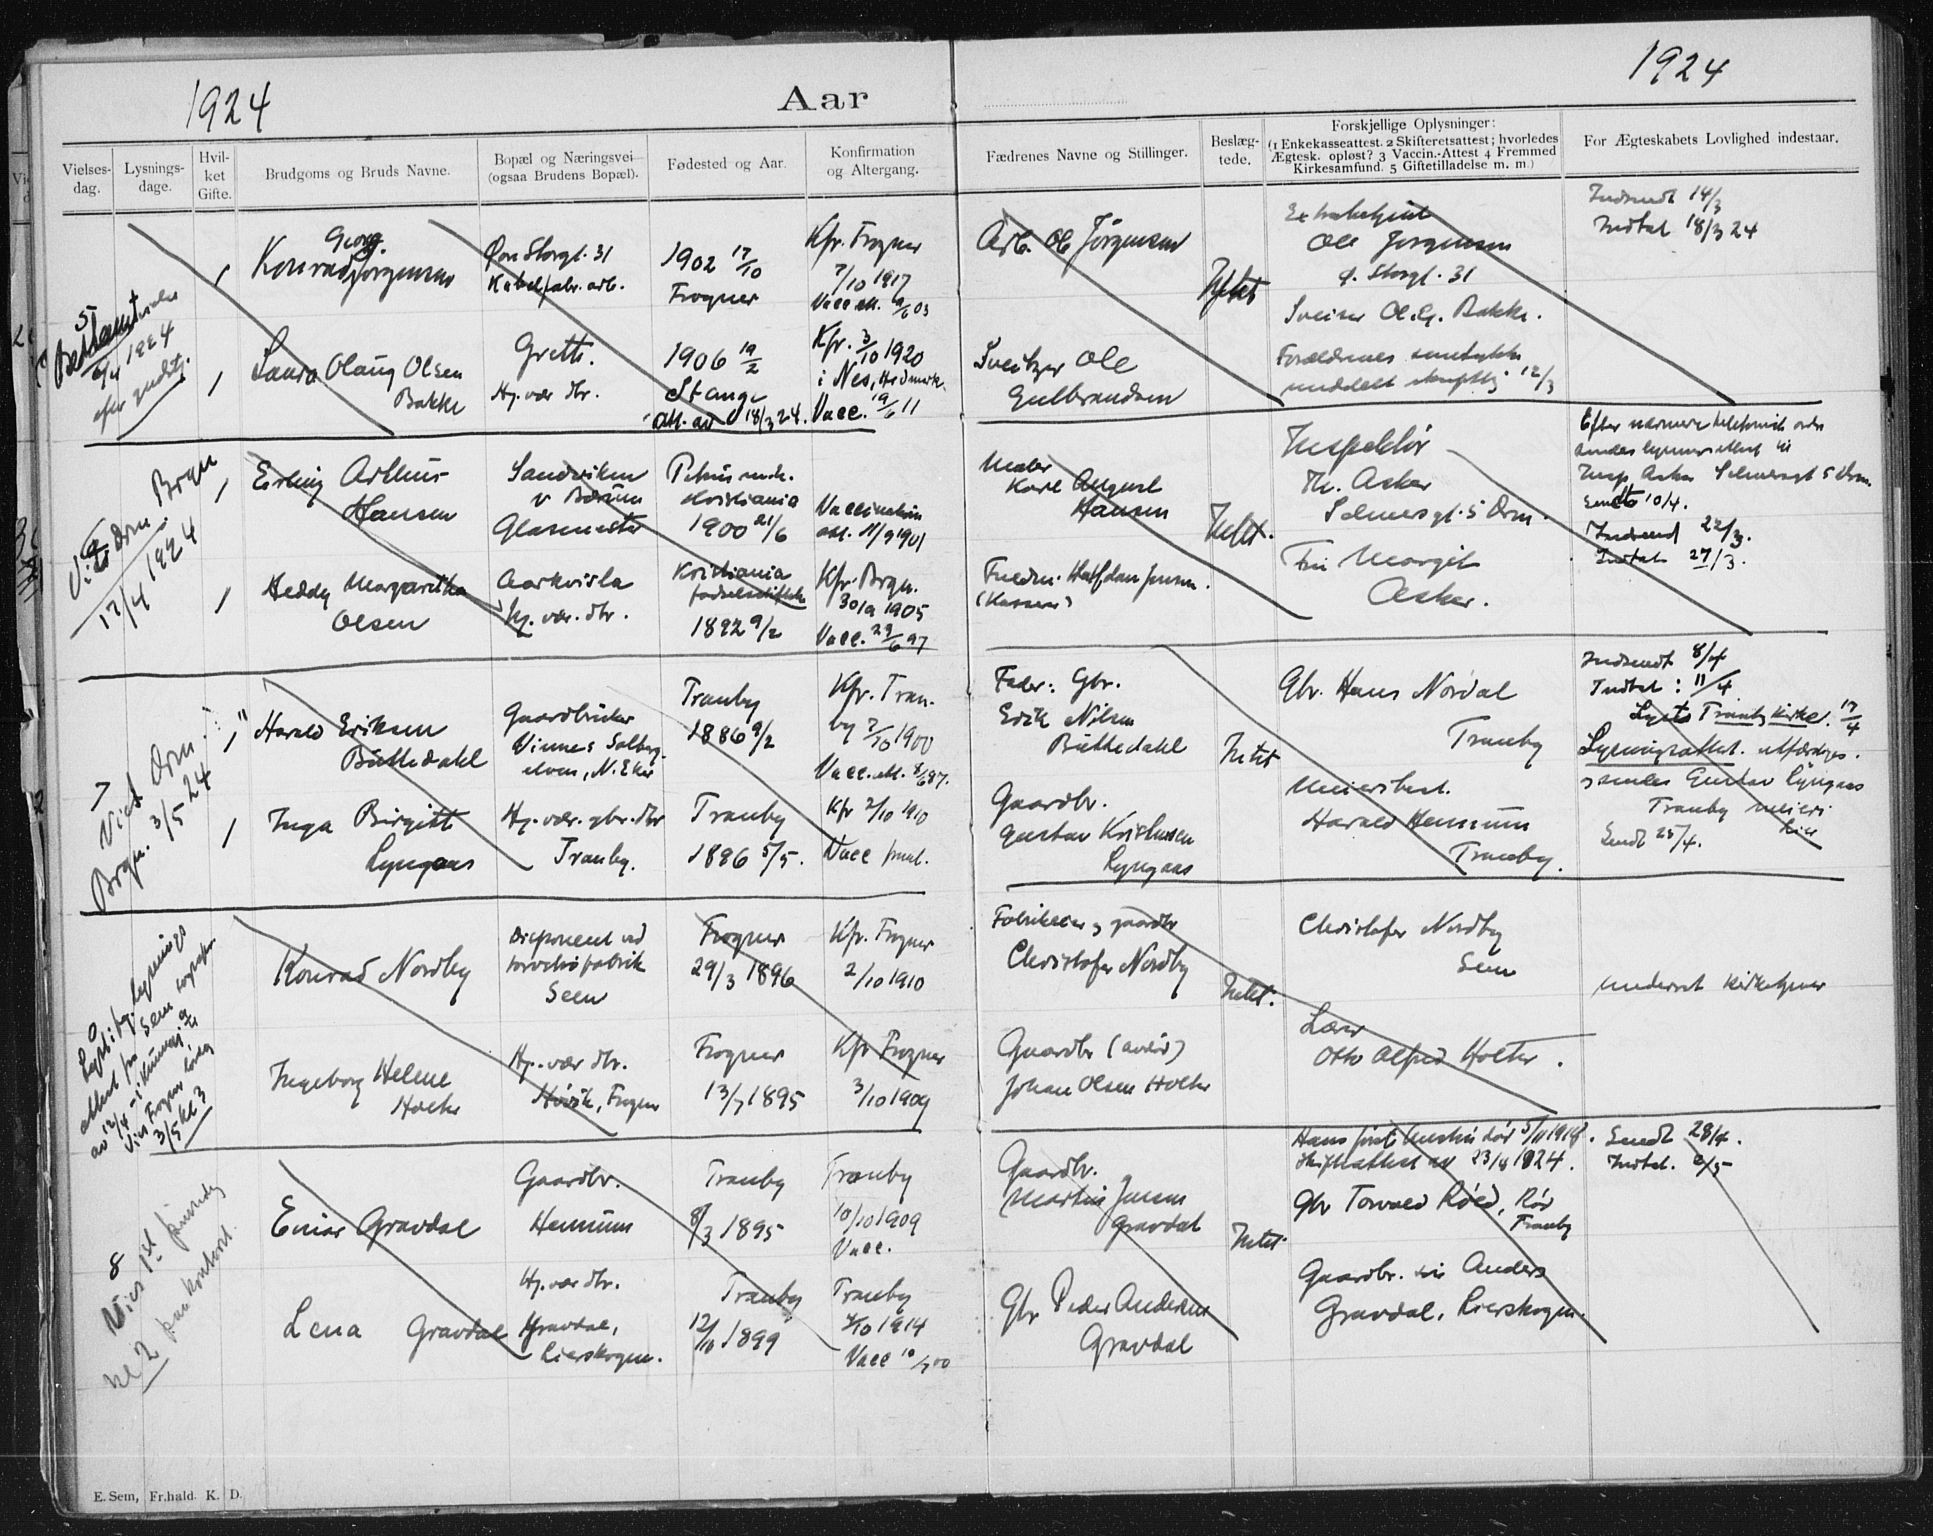 1924
Aar
1924
Vielses-dag.
Lysnings-dage.
Hvil-ket Gifte.
Brudgoms og Bruds Navne.
Bopæl og Næringsvei
(ogsaa Brudens Bopæl).
Fødested og Aar.
Konfirmation
og Altergang.
Fædrenes Navne og Stillinger.
Beslæg-
tede.
Forskjellige Oplysninger:
(1 Enkekasseattest. 2 Skifteretsattest; hvorledes
Ægtesk. opløst? 3 Vaccin.-Attest 4 Fremmed
Kirkesamfund. 5 Giftetilladelse m. m.)
For Ægteskabets Lovlighed indestaar.
5
6/4 1924
Georg
Konrad Jørgensen
Øvre Storgt. 31
Kabelfabr. arb.
1902 17/10
Frogner
Kfr. Frogner
7/10 1917
Arb. Ole Jørgensen
Intet
Ole Jørgensen
ø. Storgt. 31
Sveiser Ol. G. Bakke.
Indsendt 14/3
Indtat 18/3 24
Laura Olaug Olsen
Bakke
Grette.
Hj. vær. dtr.
1906 19/2
Stange
Att. av 18/3 24.
Kfr. 3/10 1920
i Nes, Hedmark.
Vacc. 19/6 11
Sveitzer Ole
Gulbrandsen
Forældrenes samtykke
meddelt skriftlig 12/3
17/4 1924
Erling Arthur
Hansen
Sandviken
v Bærum
Glasmester
Petrus menh.
Kristiania
1900 21/6
Vaccination
att. 11/9 1901
Maler
Karl August
Hansen
Intet.
Inspektør
Th. Asker
Selmersgt. 5 Drm.
Efter nærmere telefonisk ordre
sendes lysningsattest til
Insp. Asker Selmersgt 5 Drm.
Sendt 10/4.
Indsend 22/3.
Indtat 27/3.
Heddy Margaretha
Olsen
Hj. vær. dtr.
Kristiania
1892 9/2
Kfr. Brgn.
1905
Vacc. 29/6 97
Frk. Margit
Asker.
7
Viet Drm.
Brgn. 3/5 24
Harald Eriksen
Büttedahl
Gaardbruker
Vinnes Solberg-
elven, N. Eker
Tranby
1886 9/2
Kfr. Tran-
by 7/10 1900
Vacc. att. 8/6 87.
Fader: Gbr.
Erik Nilsen
Büttedahl
Intet
Gbr. Hans Nordal
Tranby
Indsendt 8/4
Indtat: 11/4
Lyses Tranby kirke. 17/4
Lysningsattest utfærdiges
sendes Gustav Lyngaas
Tranby meieri
Lier
Sendt 25/4.
Inga Birgitt
Lyngaas
Hj. vær. gbr. dtr
Tranby.
Tranby
1896 5/5.
Kfr 2/10 1910
Gaardbr.
Gustav Kristensen
Lyngaas
Meieribest.
Harald Hennum
Tranby.
3/5 kl 3
Konrad Nordby
Disponent ved
fabrik
Seen
Frogner
29/3 1896
Kfr. Frogner
2/10 1910
Fabrikeier og gaardbr
Christofer Nordby
Intet.
Christofer Nordby
Seen
underret kirketjener
Ingeborg Helene
Holter
Hj. vær dtr.
Høvik, Frogner
Frogner
13/7 1895
Kfr Frogner
3/10 1909
Gaardbr (avdød)
Johan Olsen Holter
Lærer
Otto Alfred Holter.
8
Vies 1st pinsedag
kl 2 paa kontoret.
Einar Gravdal
Gaardbr.
Hennum
Tranby
8/3 1895
Tranby
10/10 1909
Vacc.
Gaardbr.
Martin Jensen
Gravdal
Intet
Hans første hustru død 5/11 1918.
Skifteattest av 23/4 1924.
Gbr Torvald Røed, Rød
Tranby
Sendt 28/4.
Indtat. 2/5
Lena Gravdal
Hj. vær dtr.
Gravdal,
Lierskogen.
Tranby
12/10 1899
Tranby
4/10 1914
Vacc 10/7 00
Gbr Peder Andersen
Gravdal
Gaardbr. Anders
Gravdal, Lierskogen.
E. Sem, Fr.hald. K. D.